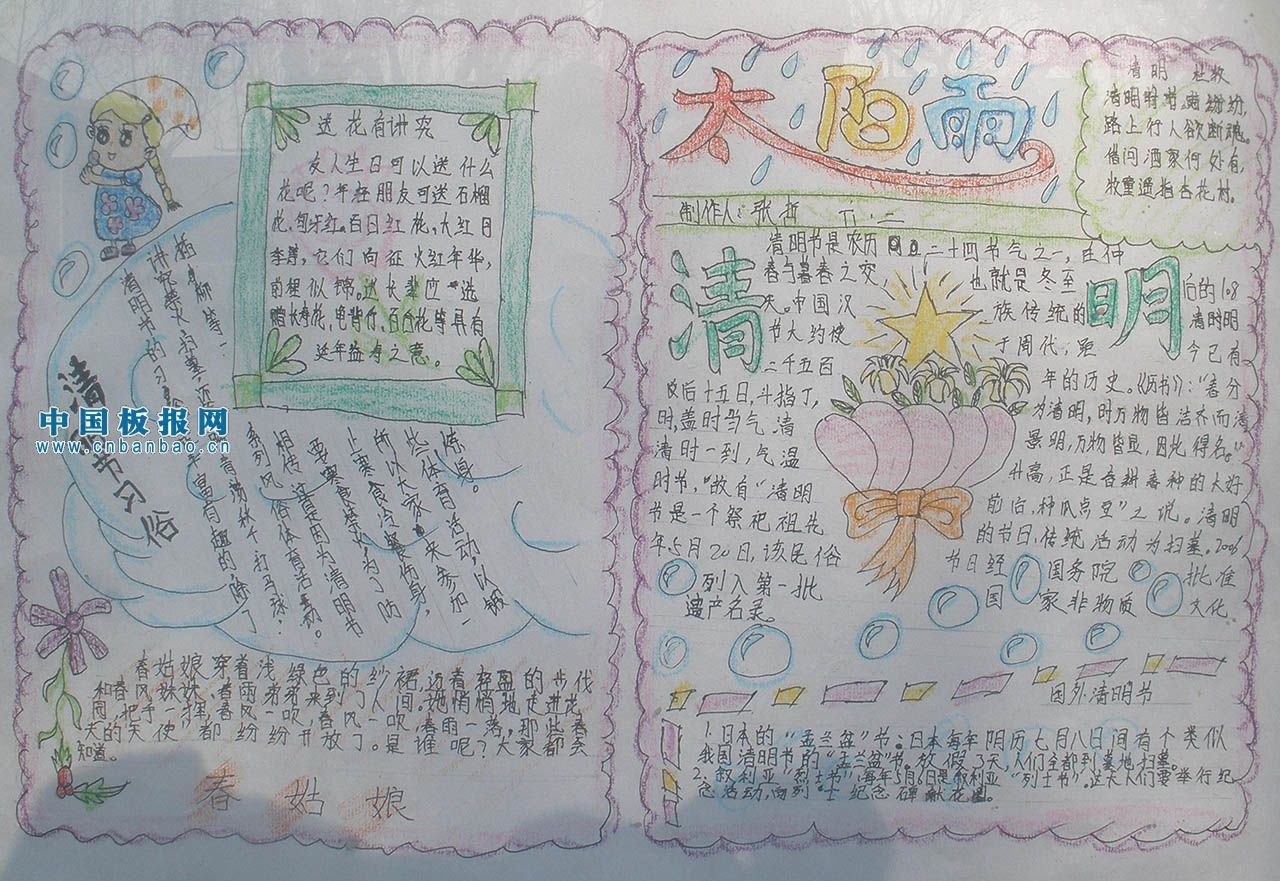 送花有讲究
友人生日可以送什么
花呢？年轻朋友可送石榴
花，
百日红花，大红月
季等，它们向征火红年华，
前程似锦。
选
百合花等具有
延年益寿之意。
清明节习俗
插柳等
清明节的习俗
荡秋千打马球
系列风俗体育活动。
相传这是因为清明节
要寒食禁火，为了防
止寒食冷餐伤身，
所以大家来参加一
些体育活动，以锻
炼身。
中国板报网
www.cnbanbao.cn
春姑娘穿着浅绿色的纱裙，迈着轻盈的步伐
和春风妹妹，春雨弟弟来到了人间，她悄悄地走进花
园，把手一挥，春风一吹，春雨一落，那些春
天的天使都纷纷开放了。是谁呢？大家都会
知道。
春姑娘
太阳雨
清明 杜牧
清明时节雨纷纷，
路上行人欲断魂。
借问酒家何处有，
牧童遥指杏花村。
制作人：张哲 六·二
清明
清明节是农历二十四节气之一，在仲
春与暮春之交 也就是冬至
后的108
天。中国汉 族传统的 清明
节大约使 于周代，距 今已有
二千五百 年的历史。《历书》：“春分
后十五日，斗指丁， 为清明，时万物皆洁齐而清
明，盖时当气清 景明，万物皆显，因此得名。”
清时一到，气温 升高，正是春耕春种的大好
时节，“故自”清明 前后，种瓜点豆”之说。清明
节是一个祭祀祖先 的节日，传统活动为扫墓。2006
年5月20日，该民俗 节日经 国务院 批准
列入第一批 国 家非物质 文化
遗产名录。
国外清明节
1.日本的“孟兰盆”节：日本每年阴历七月八日间有个类似
我国清明节的“孟兰盆”节。放假3天，人们全都到墓地扫墓。
2.叙利亚“烈士节”：每年5月6日是叙利亚“烈士节”。这天人们要举行纪
念活动，向烈士纪念碑献花圈。